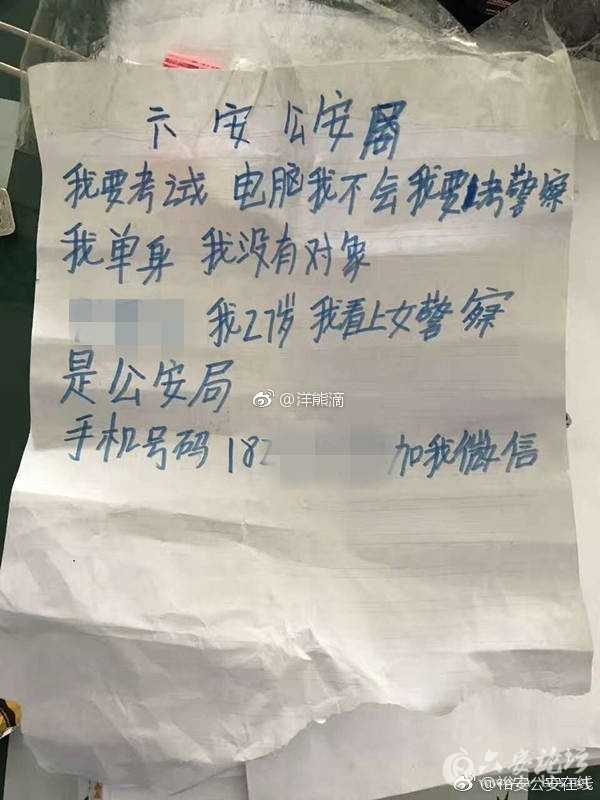 六安公安局
我要考试 电脑我不会我要考警察
我单身 我没有对象
我27岁 我看上女警察
是公安局
@洋熊滴
手机号码182 加我微信
六安论坛
@裕安公安在线